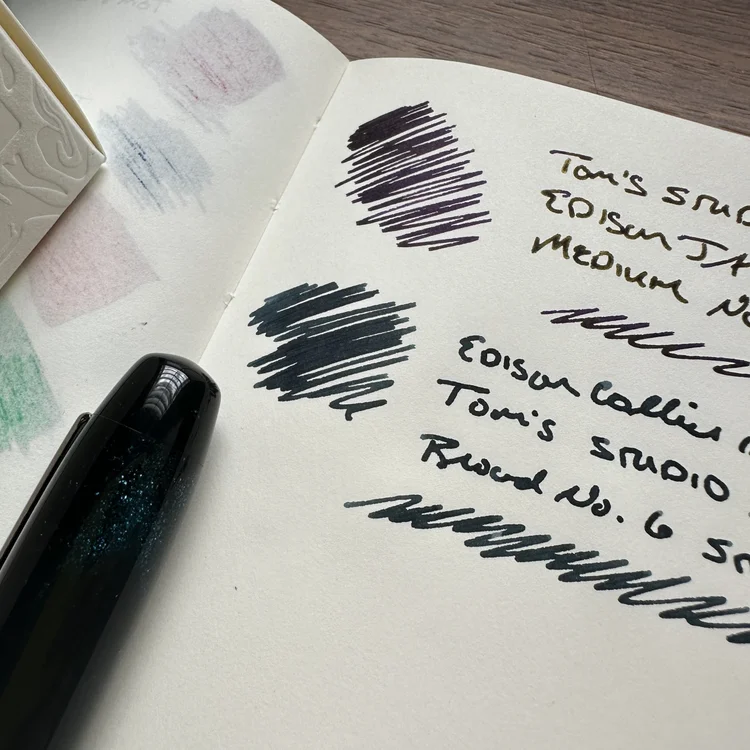 Tom's STUD
EDISON JA
MEDIUM No
EDISON Collier
Tom's STUDIO
Broad No. 6 S